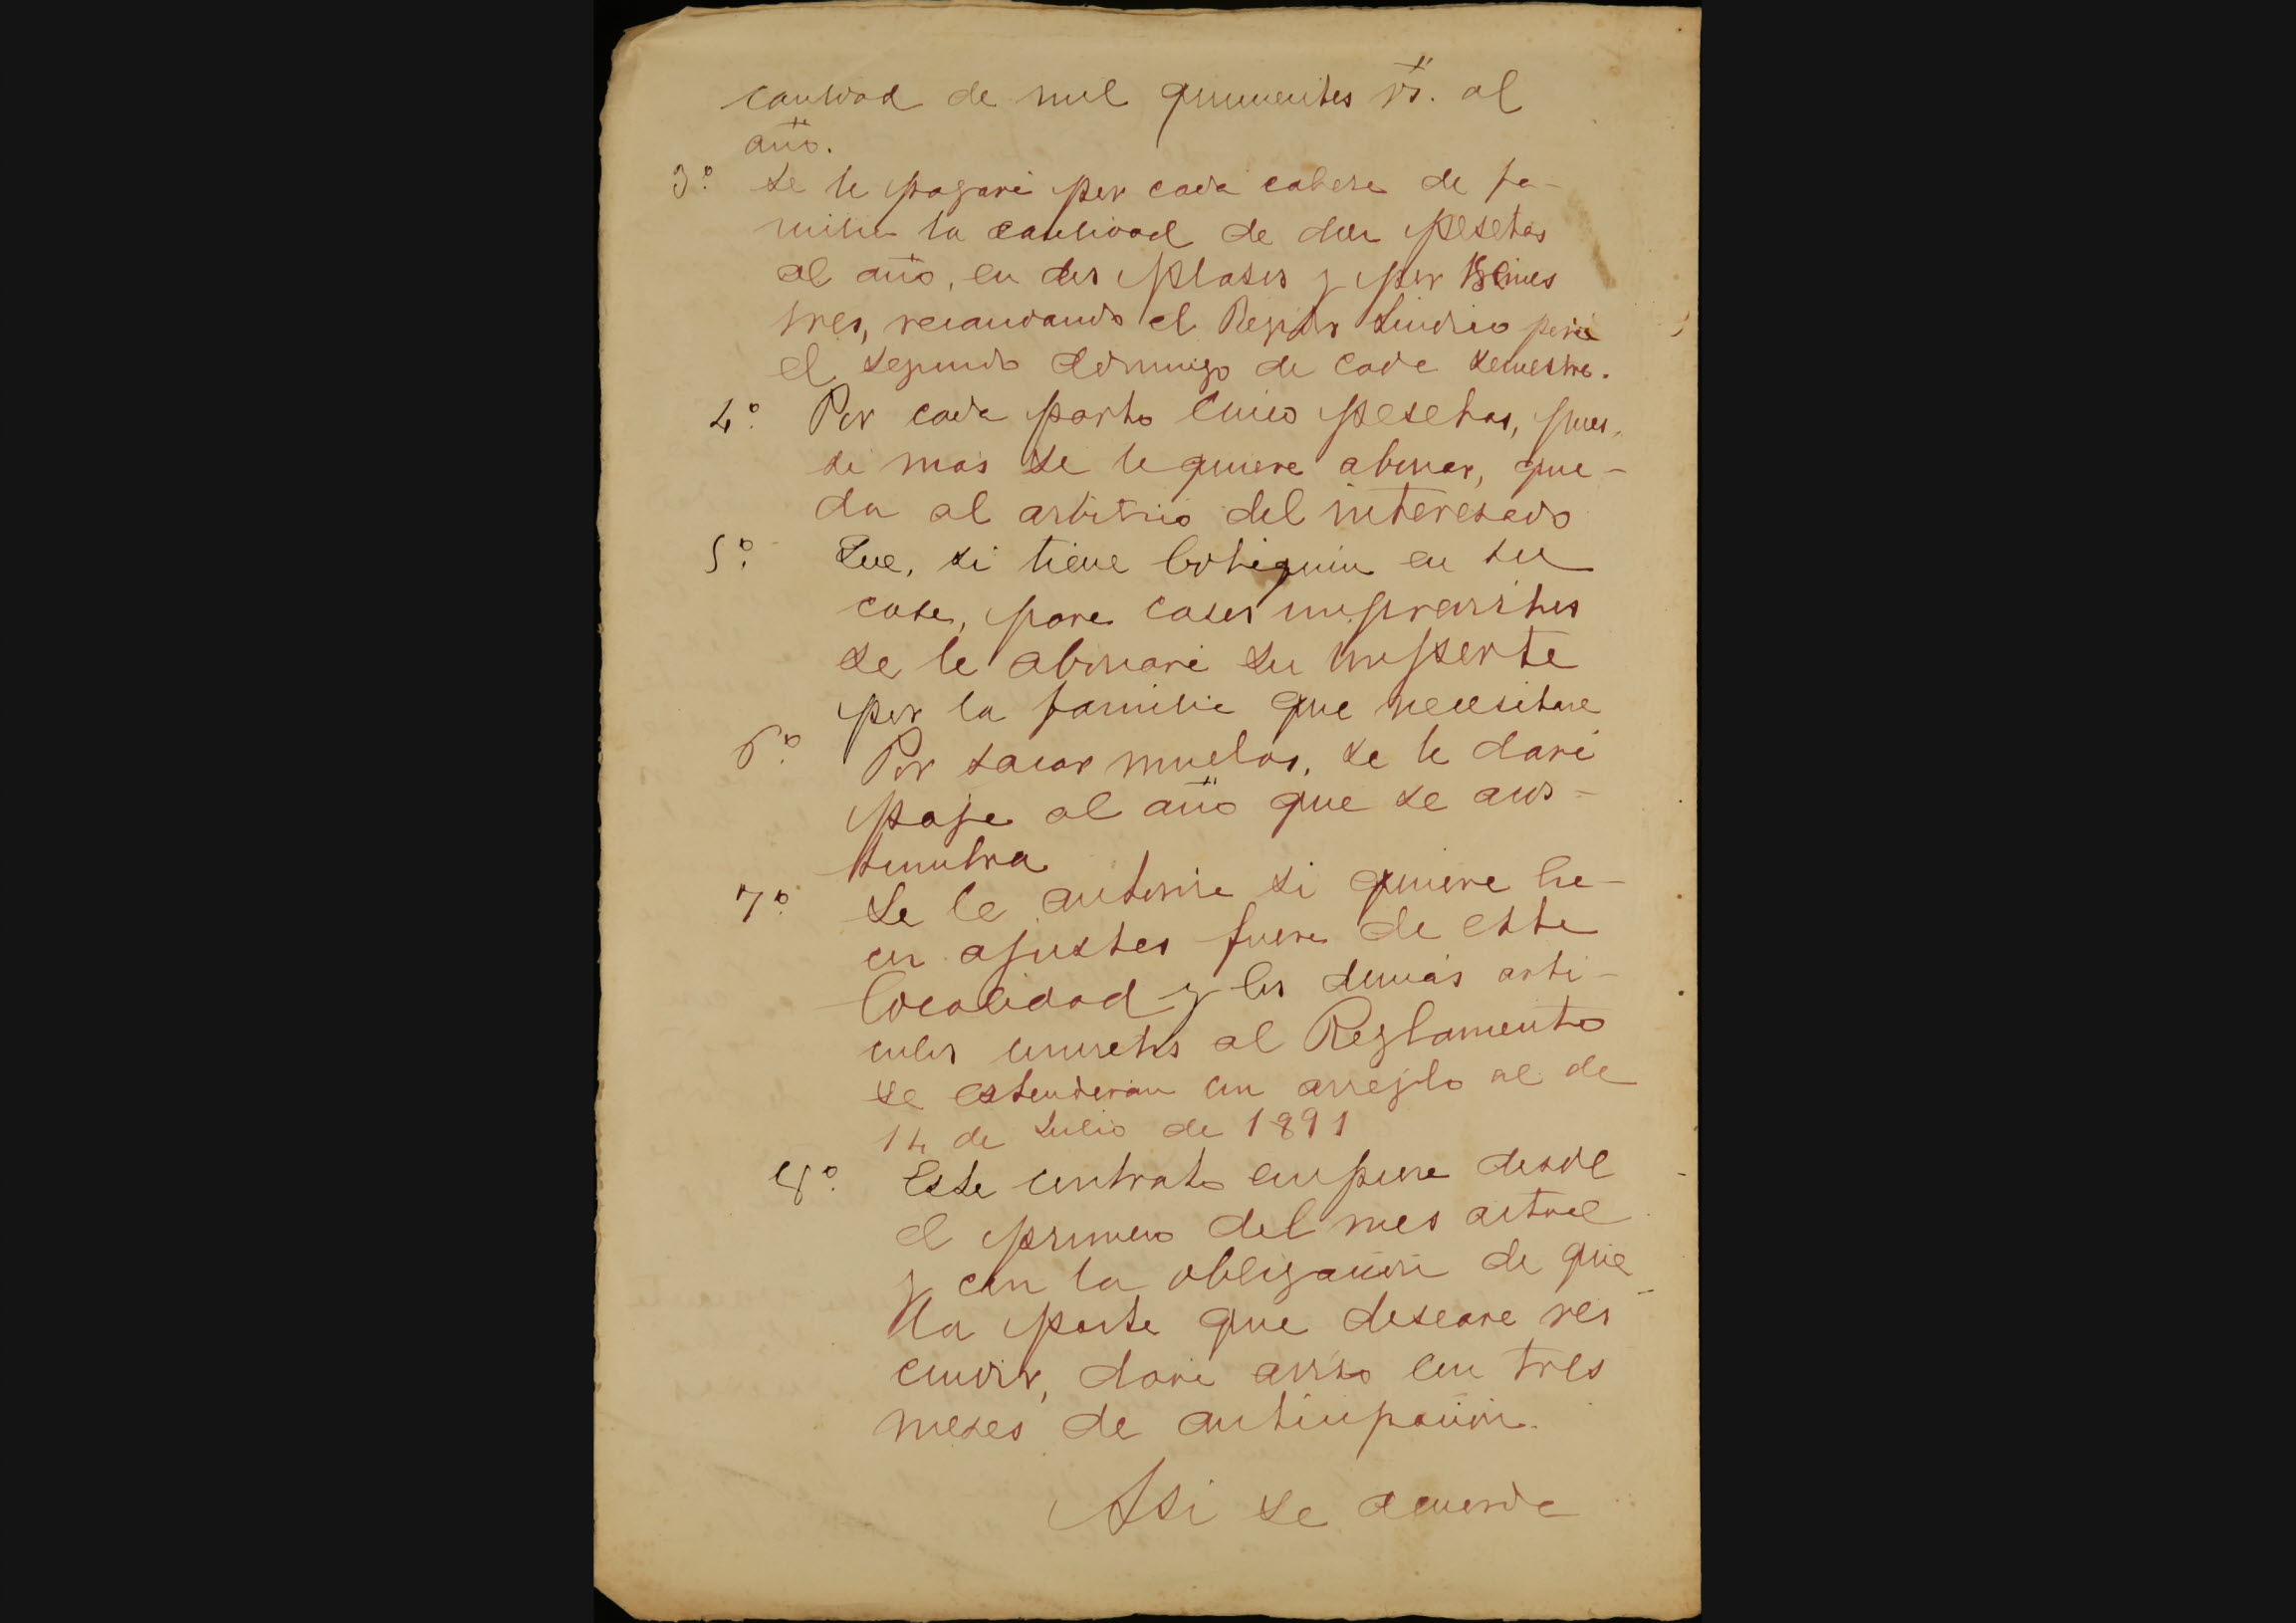 cantidad de mil quinientos rs. al
año.
3º. Se le pagará por cada cabeza de fa-
milia la cantidad de dos pesetas
al año, en dos plazos y por semes
tres, recaudando el Regidor Sindico para
el segundo domingo de cada semestre.
4º. Por cada parto cinco pesetas, pues,
si más se le quiere abonar, que-
da al arbitrio del interesado
5º. Que, si tiene botiquin en su
casa, para casos imprevistos
se le abonará su importe
por la familia que necesitare
6º. Por sacar muelas, se le dará
paja al año que se acos-
tumbra
7º. Se le autoriza si quiere ha-
cer ajustes fuera de esta
localidad y los demás arti-
culos al Reglamento
se estenderán con arreglo al de
14 de Julio de 1891
8º. Este contrato empieza desde
el primero del mes actual
y con la obligación de que
la parte que deseare res
cindir, dará aviso con tres
meses de anticipación.
Asi se acuerda